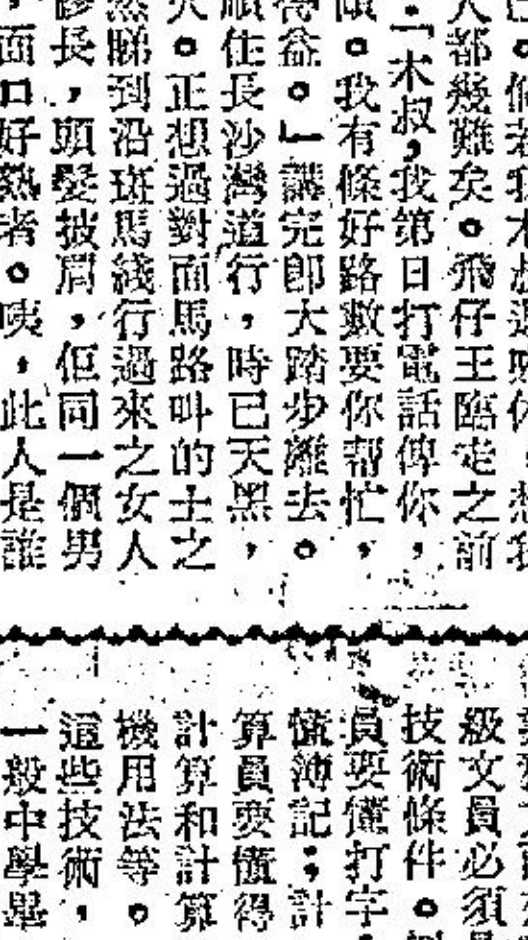 人都幾難矣。飛仔王臨走之前
:「木叔,我第日打電話俾你,
頭。我有條好路數要你幫忙,
得益。」講完即大踏步離去。
順住長沙灣道行,時已天黑,
。正想過對面馬路叫的士之
然睇到沿斑馬綫行過來之女人
長,頭髮披肩,佢同一個男
,面口好熟者。咦,此人是誰
級文員必須
技術條件。
員要懂打字
懂簿記;計
算員要懂得
計算和計算
機用法等。
這些技術,
一般中學畢